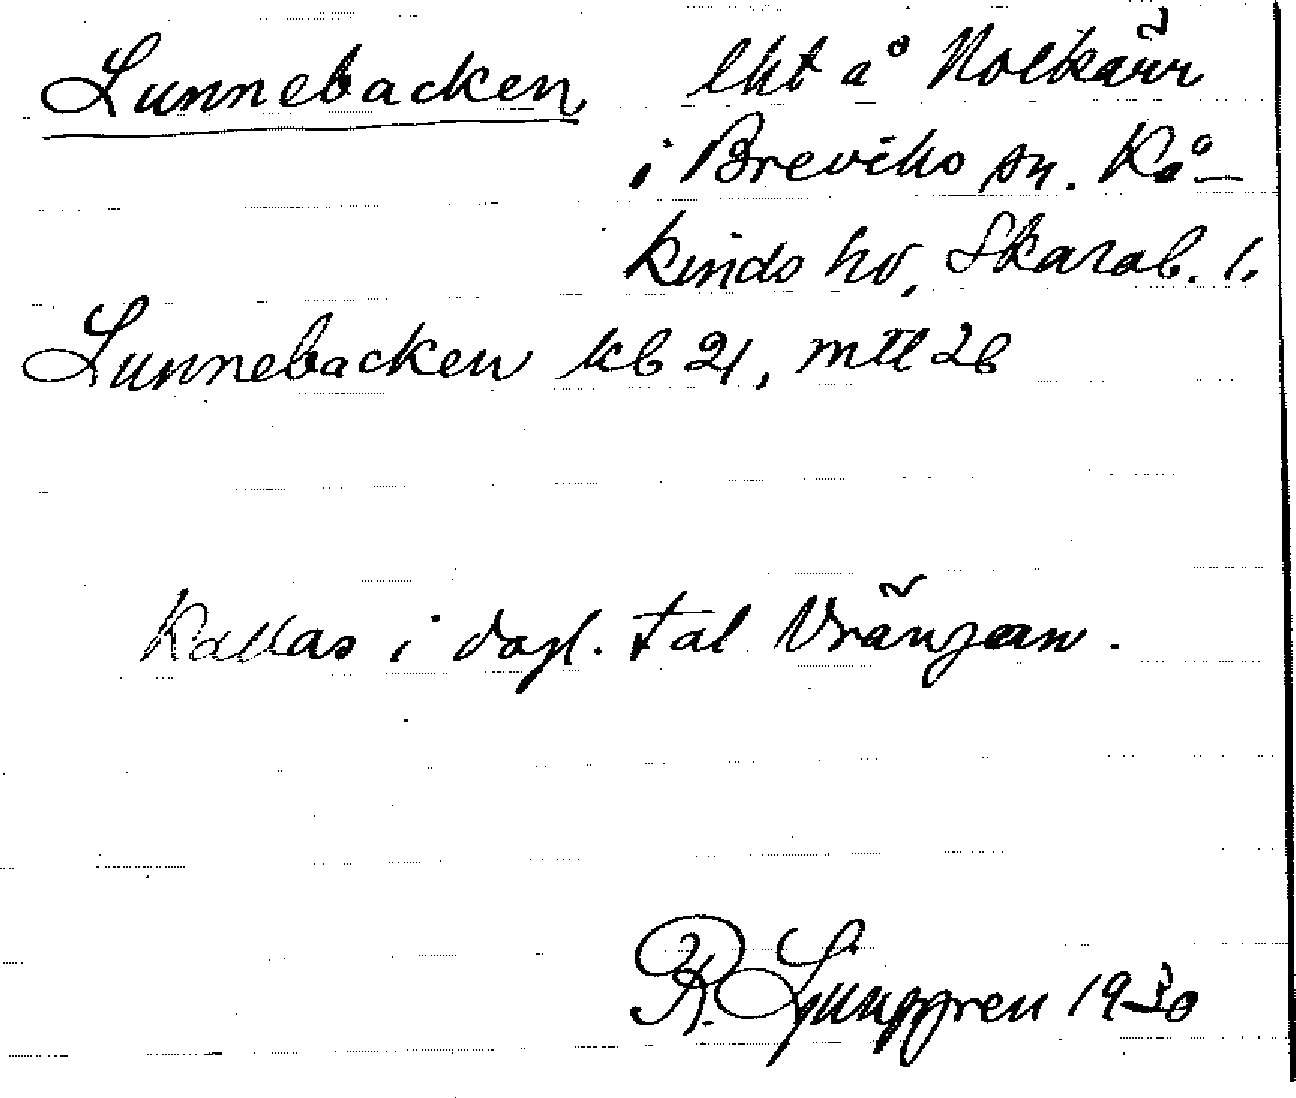 Lunnebacken lht å Nolkärr
i Breviks sn. Kå-
kinds hd, Skarab. l.
Lunnebacken kb 21, mtl 2b
Kallas i dagl. tal Vrängan.
R. Ljunggren 1930